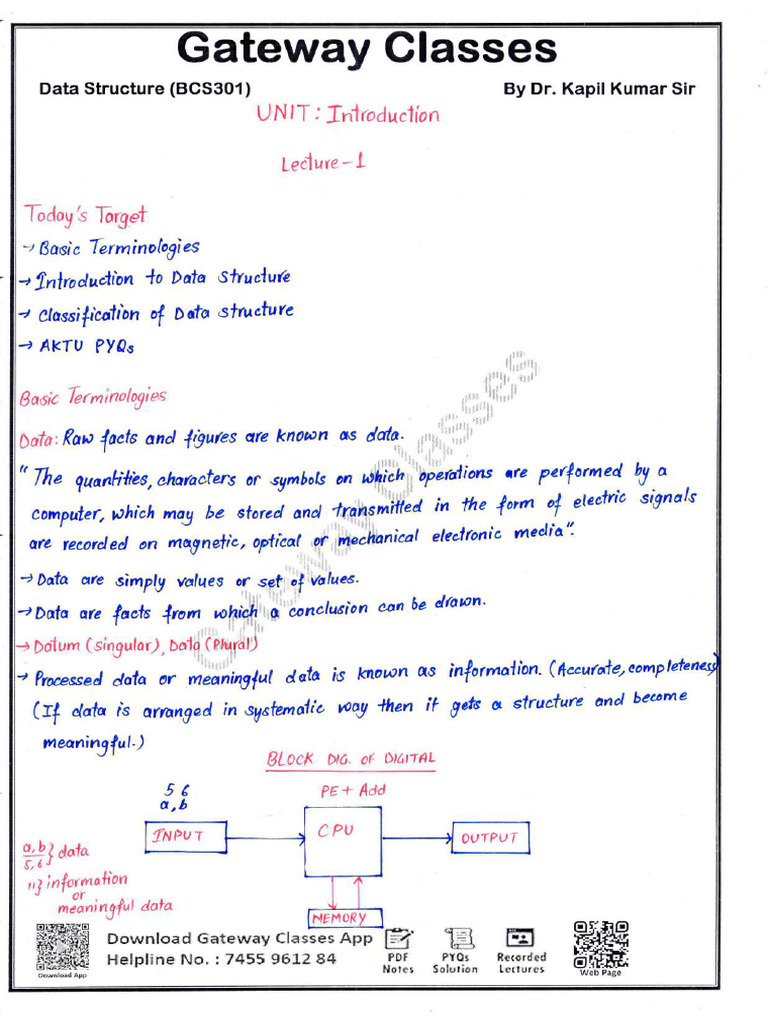 Gateway Classes
Data Structure (BCS301) By Dr. Kapil Kumar Sir
UNIT: Introduction
Lecture-1
Today's Target
→ Basic Terminologies
→ Introduction to Data Structure
→ Classification of Data Structure
→ AKTU PYQs
Basic Terminologies
Data: Raw facts and figures are known as data.
"The quantities, characters or symbols on which operations are performed by a
computer, which may be stored and transmitted in the form of electric signals
are recorded on magnetic, optical or mechanical electronic media".
→ Data are simply values or set of values.
→ Data are facts from which a conclusion can be drawn.
→ Datum (singular), Data (Plural)
→ Processed data or meaningful data is known as information. (Accurate, completeness)
(If data is arranged in systematic way then it gets a structure and become
meaningful.)
BLOCK DIG. OF DIGITAL
5 6
a, b
PE + Add
INPUT
CPU
OUTPUT
MEMORY
a, b
5, 6 } data
11} information
or
meaningful data
Gateway Classes
Download App
Download Gateway Classes App
Helpline No. : 7455 9612 84
PDF
Notes
PYQs
Solution
Recorded
Lectures
Web Page